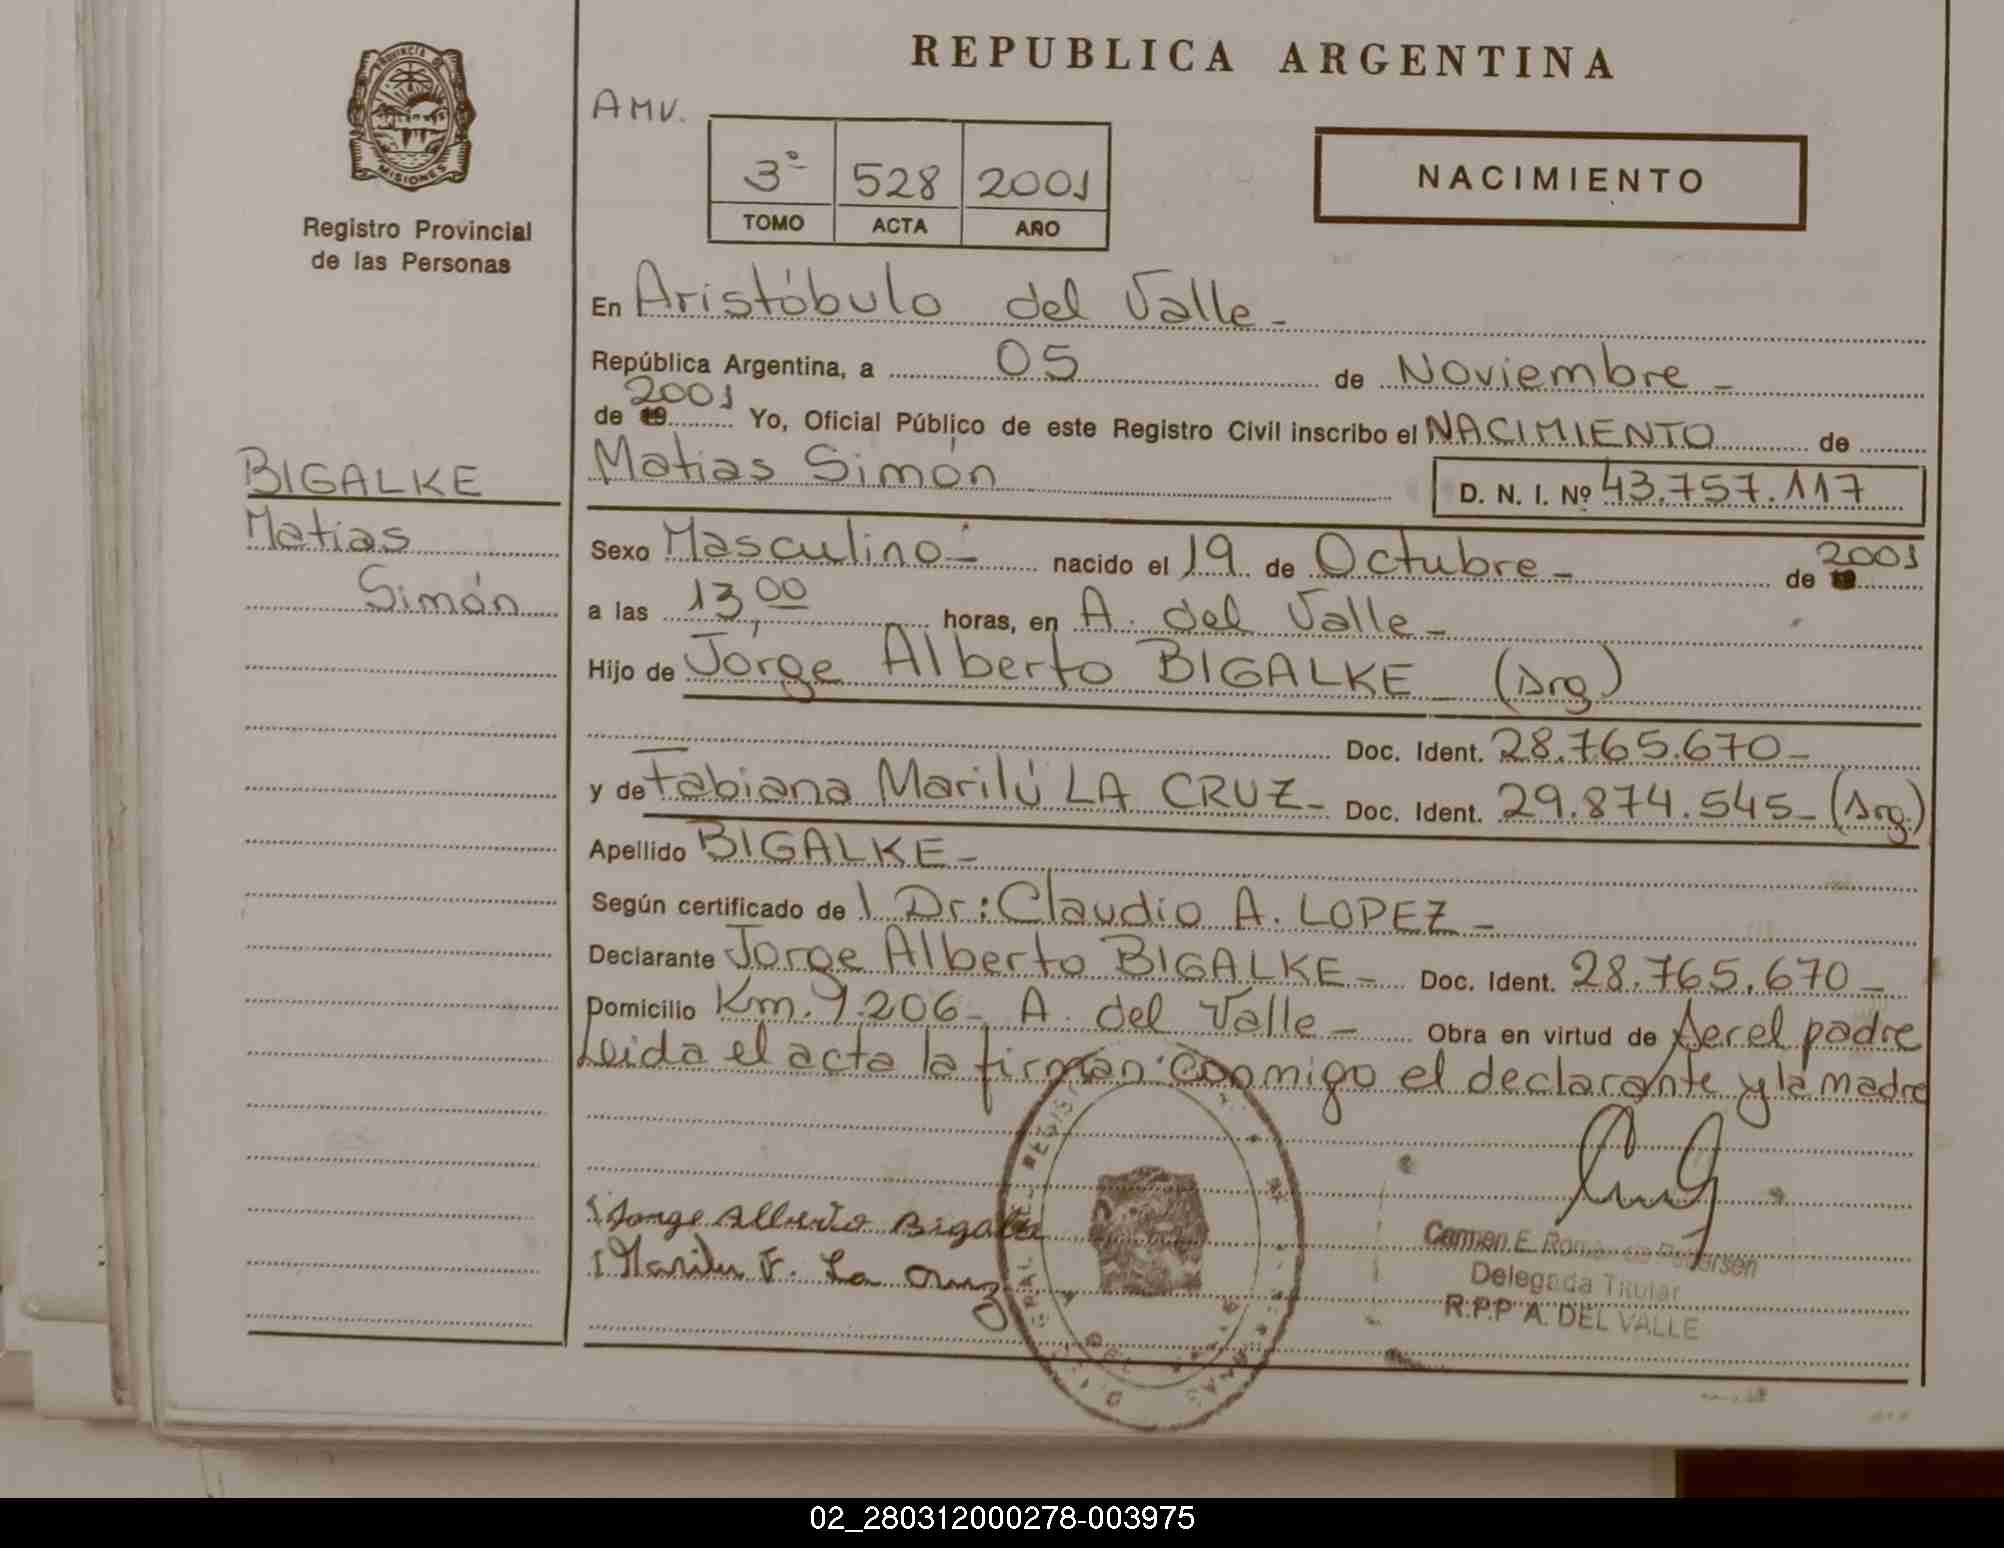 PROVINCIA DE
MISIONES
Registro Provincial
de las Personas
BIGALKE
Matias
Simón
REPUBLICA ARGENTINA
AMV.
3º 528 2001
TOMO ACTA AÑO
NACIMIENTO
En Aristóbulo del Valle-
República Argentina, a 05 de Noviembre-
de 19 2001 Yo, Oficial Público de este Registro Civil inscribo el NACIMIENTO de
Matias Simón D. N. I. Nº 43.757.117
Sexo Masculino- nacido el 19 de Octubre- de 2001
a las 13,00 horas, en A. del Valle-
Hijo de Jorge Alberto BIGALKE (Arg)
Doc. Ident. 28.765.670-
y de Fabiana Marilú LA CRUZ- Doc. Ident. 29.874.545- (Arg.)
Apellido BIGALKE-
Según certificado de l Dr: Claudio A. LOPEZ-
Declarante Jorge Alberto BIGALKE- Doc. Ident. 28.765.670-
Domicilio Km. 9.206- A. del Valle- Obra en virtud de ser el padre
Leida el acta la firman conmigo el declarante y la madre
Jorge Alberto Bigalke
Marilu F. La Cruz
Carmen E. Rom
Delegada Titular
R.P.P A. DEL VALLE
02_280312000278-003975